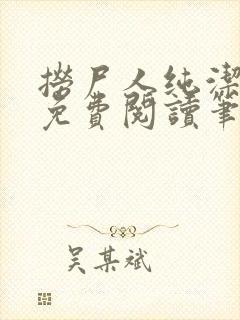 撈尸人純潔
免費閱讀筆
吳某斌